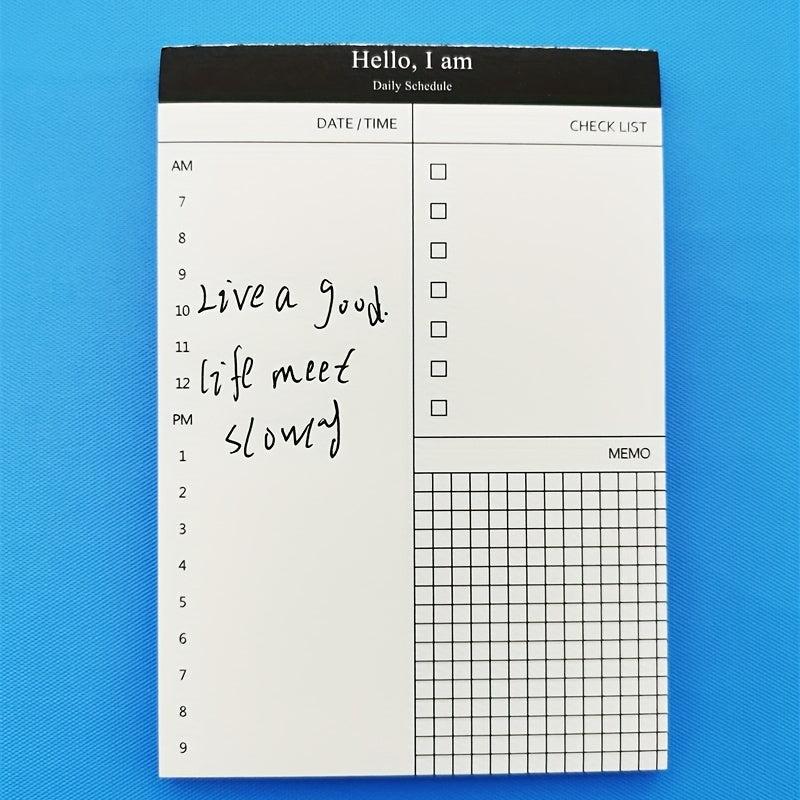 Hello, I am
Daily Schedule
DATE / TIME
AM
7
8
9
10
11
12
PM
1
2
3
4
5
6
7
8
9
Live a good.
life meet
slowly
CHECK LIST
MEMO